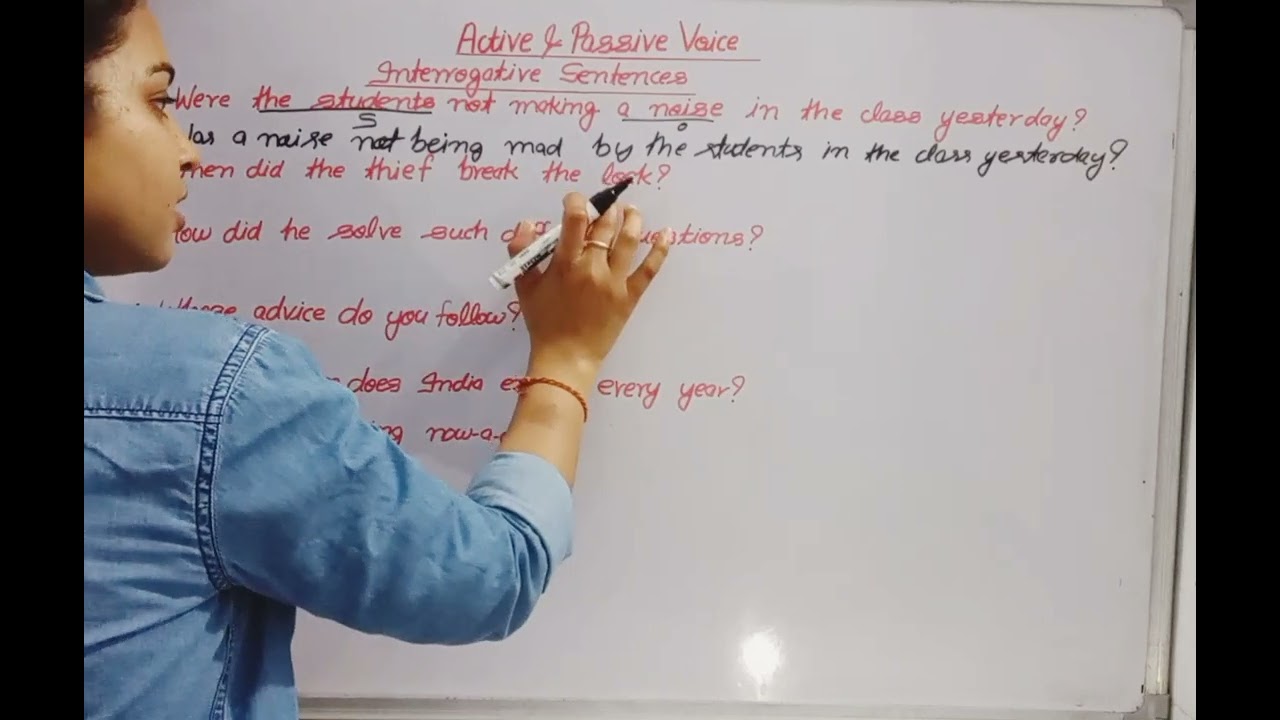 Active & Passive Voice
Interrogative Sentences
Were the students not making a noise in the class yesterday?
S o
a noise not being mad by the students in the class yesterday?
did the thief break the lock?
did he solve such
advice do you follow?
does India every year?